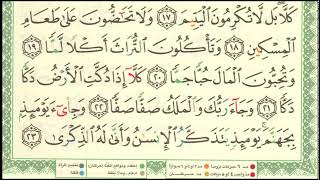 كَلَّا بَل لَّا تُكْرِمُونَ الْيَتِيمَ ١٧ وَلَا تَحَاضُّونَ عَلَىٰ طَعَامِ
الْمِسْكِينِ ١٨ وَتَأْكُلُونَ التُّرَاثَ أَكْلًا لَّمًّا ١٩
وَتُحِبُّونَ الْمَالَ حُبًّا جَمًّا ٢٠ كَلَّا إِذَا دُكَّتِ الْأَرْضُ دَكًّا
دَكًّا ٢١ وَجَاءَ رَبُّكَ وَالْمَلَكُ صَفًّا صَفًّا ٢٢ وَجِايءَ يَوْمَئِذٍ
بِجَهَنَّمَ يَوْمَئِذٍ يَتَذَكَّرُ الْإِنسَانُ وَأَنَّىٰ لَهُ الذِّكْرَىٰ ٢٣